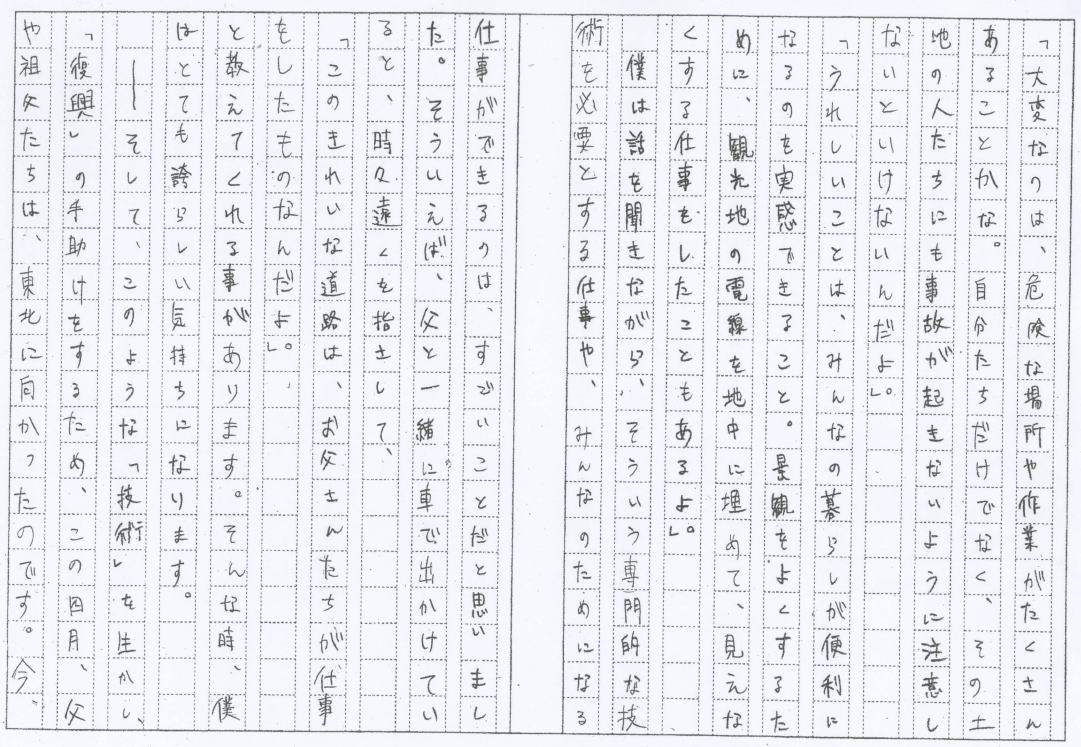 「大変なのは、危険な場所や作業がたくさん
あることかな。自分たちだけでなく、その土
地の人たちにも事故が起きないように注意し
ないといけないんだよ。」
「うれしいことは、みんなの暮らしが便利に
なるのを実感できること。景観をよくするた
めに、観光地の電線を地中に埋めて、見えな
くする仕事をしたこともあるよ。」
僕は話を聞きながら、そういう専門的な技
術を必要とする仕事や、みんなのためになる
仕事ができるのは、すごいことだと思いまし
た。そういえば、父と一緒に車で出かけてい
ると、時々遠くを指さして、
「このきれいな道路は、お父さんたちが仕事
をしたものなんだよ。」
と教えてくれる事があります。そんな時、僕
はとても誇らしい気持ちになります。
――そして、このような「技術」を生かし、
「復興」の手助けをするため、この四月、父
や祖父たちは、東北に向かったのです。今、